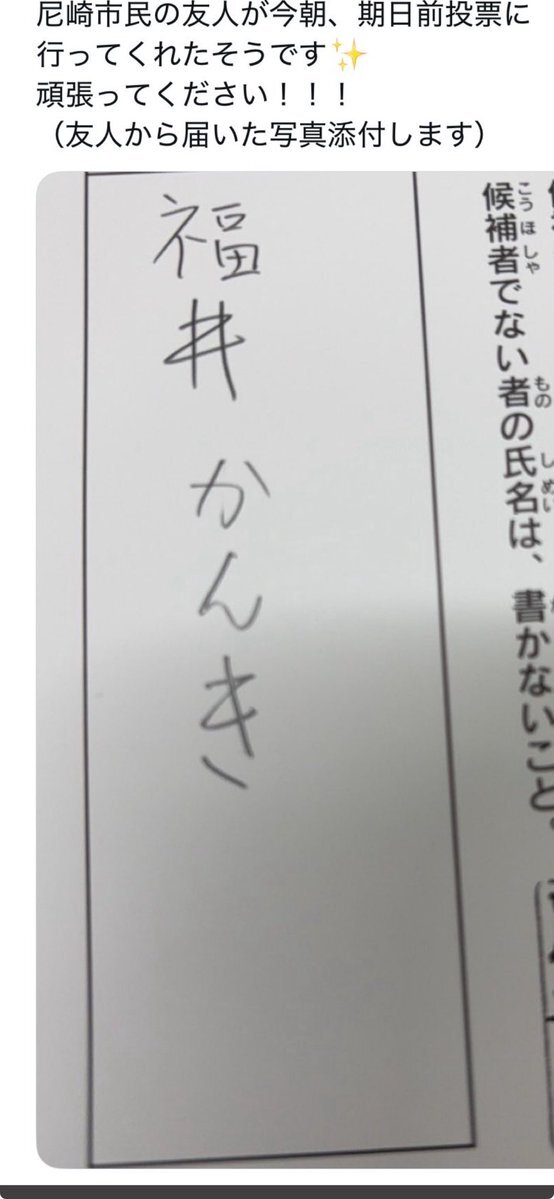 尼崎市民の友人が今朝、期日前投票に
行ってくれたそうです✨
頑張ってください！！！
（友人から届いた写真添付します）
候補者でない者の氏名は、書かないこと。
こうほしゃ
もの
しめい
福井かんき